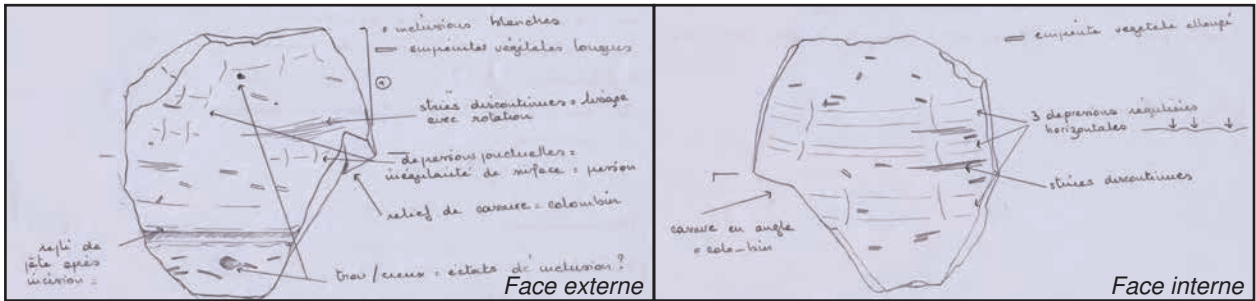 • inclusions blanches
empreintes végétales longues
stries discontinues = lissage
avec rotation
dépressions ponctuelles =
irrégularité de surface = pression
relief de cassure = colombin
repli de
pâte après
incision =
trou / creux = éclats d'inclusion ?
Face externe
empreinte végétale allongé
3 dépressions régulières
horizontales
stries discontinues
cassure en angle
= colombin
Face interne